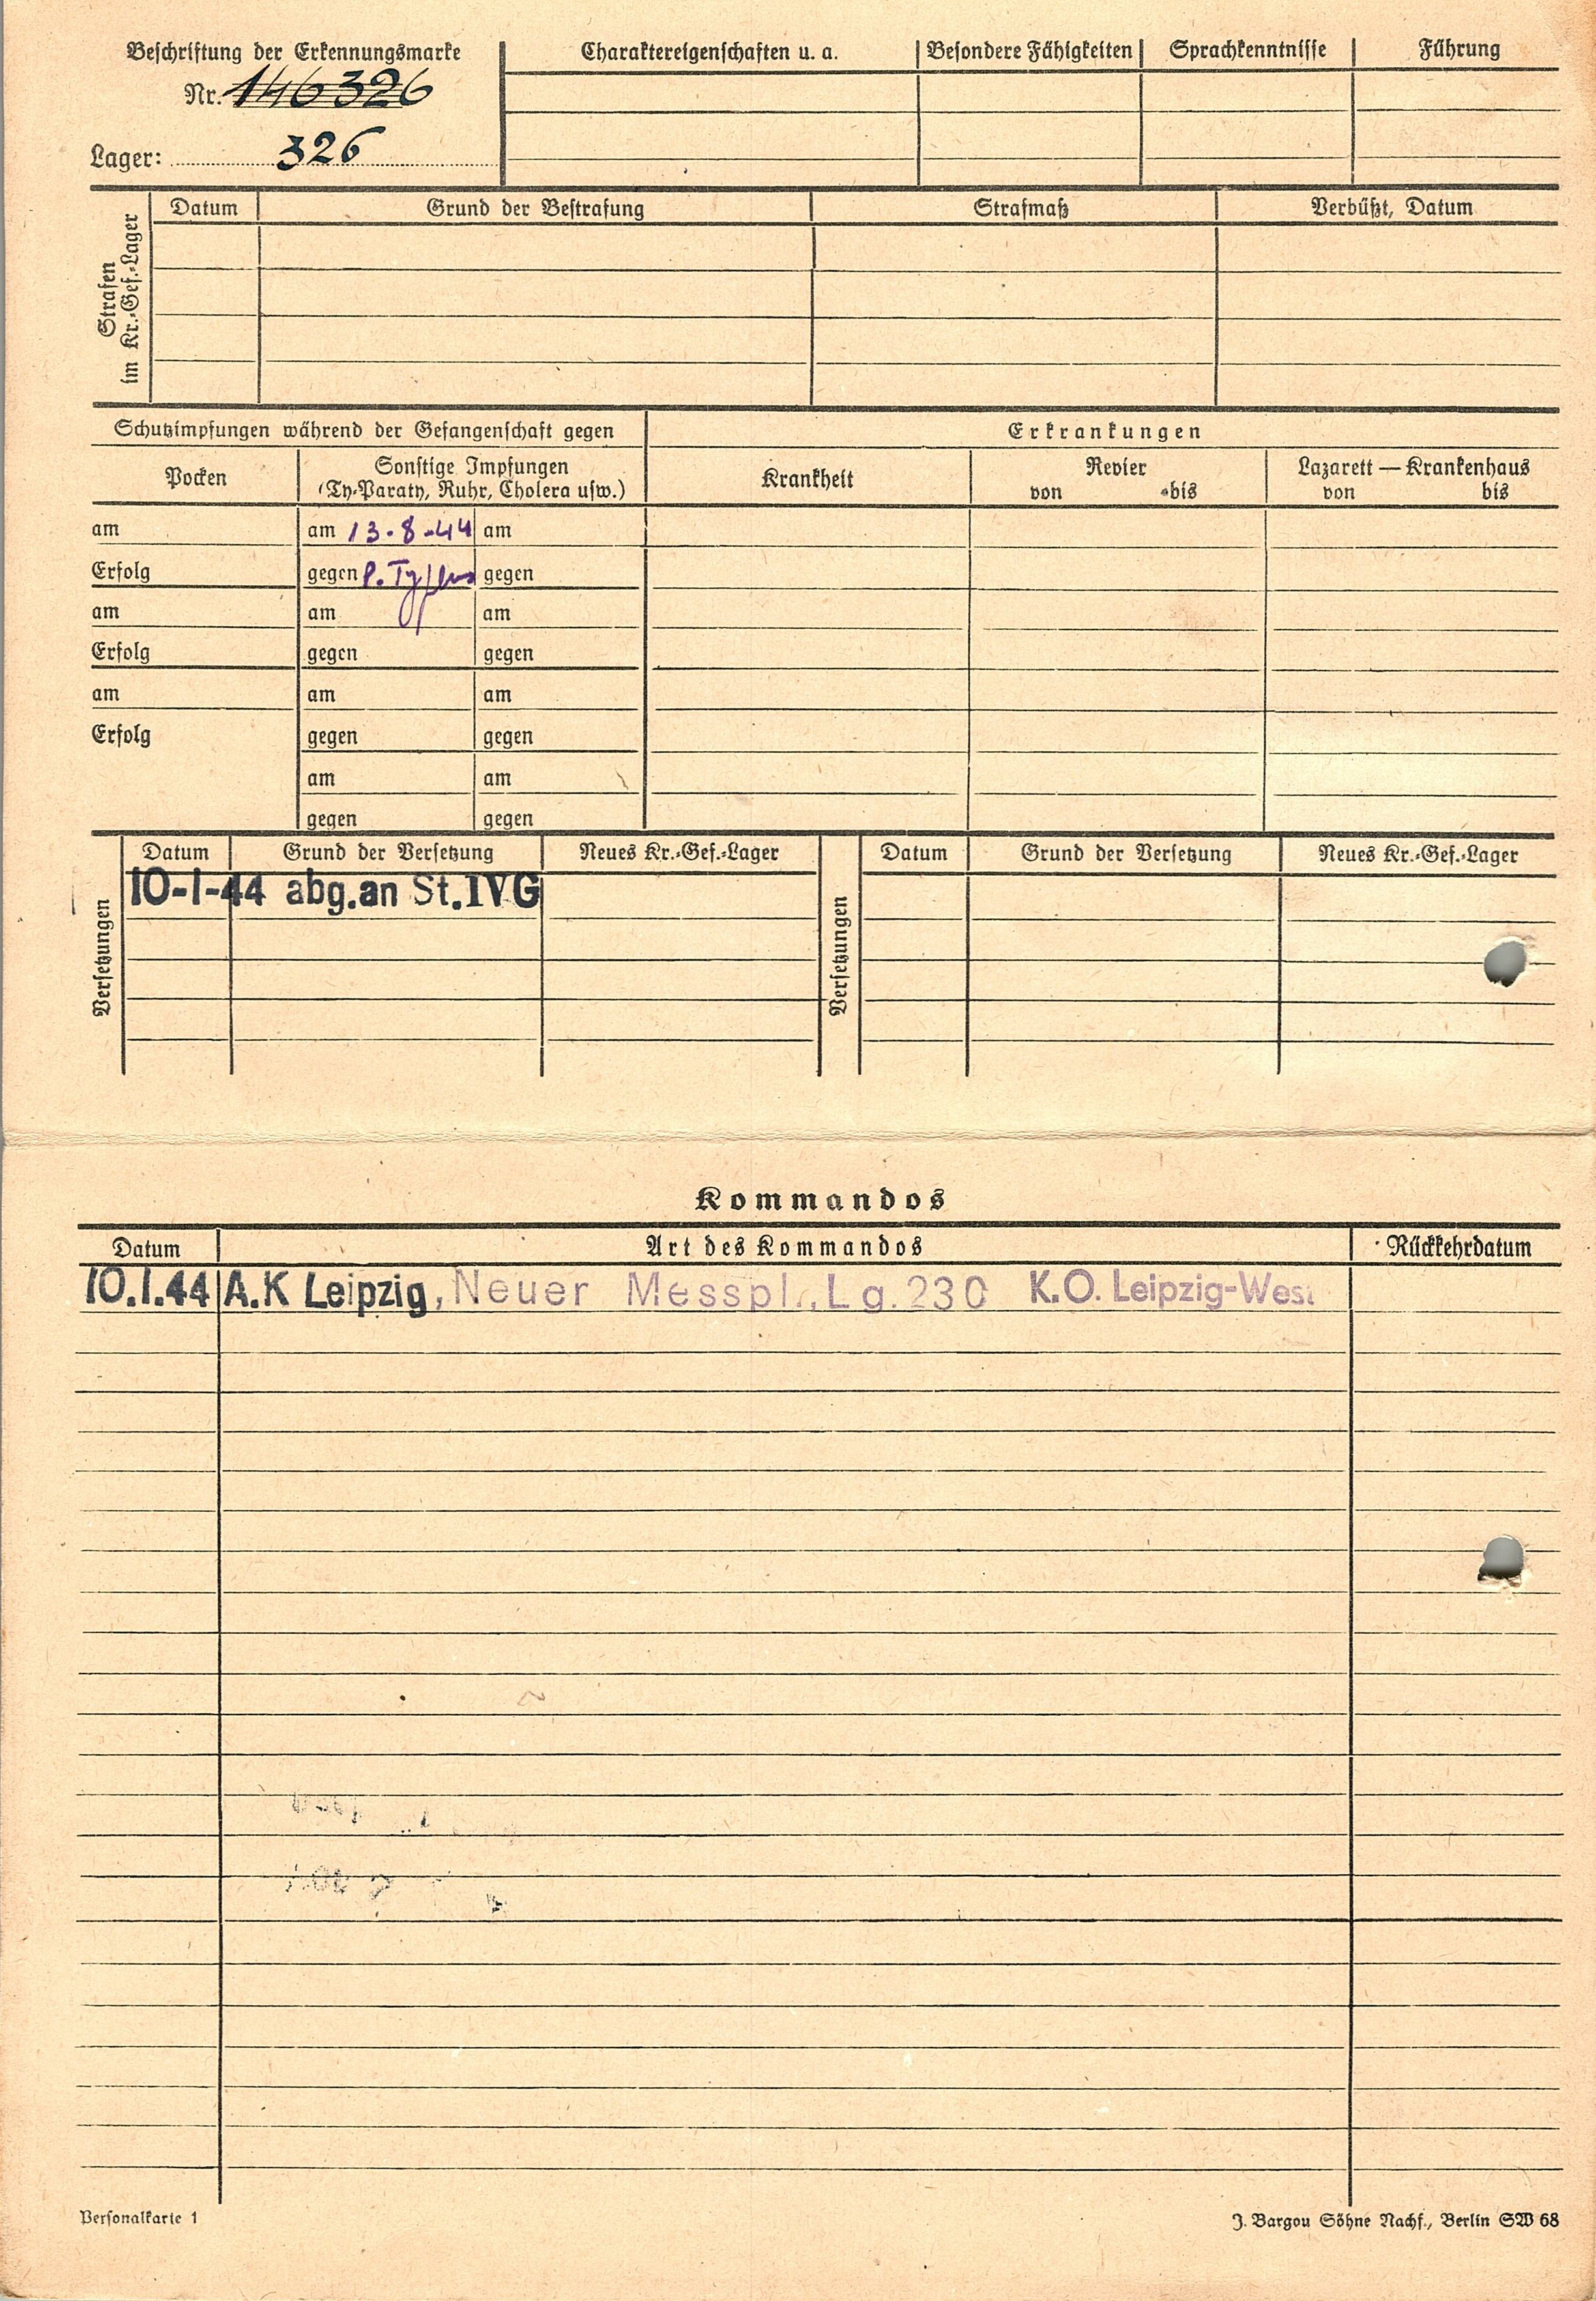 Beschriftung der Erkennungsmarke
Nr. 146326
Lager: 326
Charaktereigenschaften u. a. Besondere Fähigkeiten Sprachkenntnisse Führung
Strafen
im Kr.-Gef.-Lager
Datum Grund der Bestrafung Strafmaß Verbüßt, Datum
Schutzimpfungen während der Gefangenschaft gegen Erkrankungen
Pocken Sonstige Impfungen
(Ty-Paraty, Ruhr, Cholera usw.) Krankheit Revier
von bis Lazarett — Krankenhaus
von bis
am am 13-8-44 am
Erfolg gegen P. Typhus gegen
am am am
Erfolg gegen gegen
am am am
Erfolg gegen gegen
am am
gegen gegen
Versetzungen
Datum Grund der Versetzung Neues Kr.-Gef.-Lager
10-1-44 abg.an St.IVG
Versetzungen
Datum Grund der Versetzung Neues Kr.-Gef.-Lager
Kommandos
Datum Art des Kommandos Rückkehrdatum
10.1.44 A.K Leipzig, Neuer Messpl., Lg. 230 K.O. Leipzig-West
Personalkarte 1 J. Bargou Söhne Nachf., Berlin SW 68